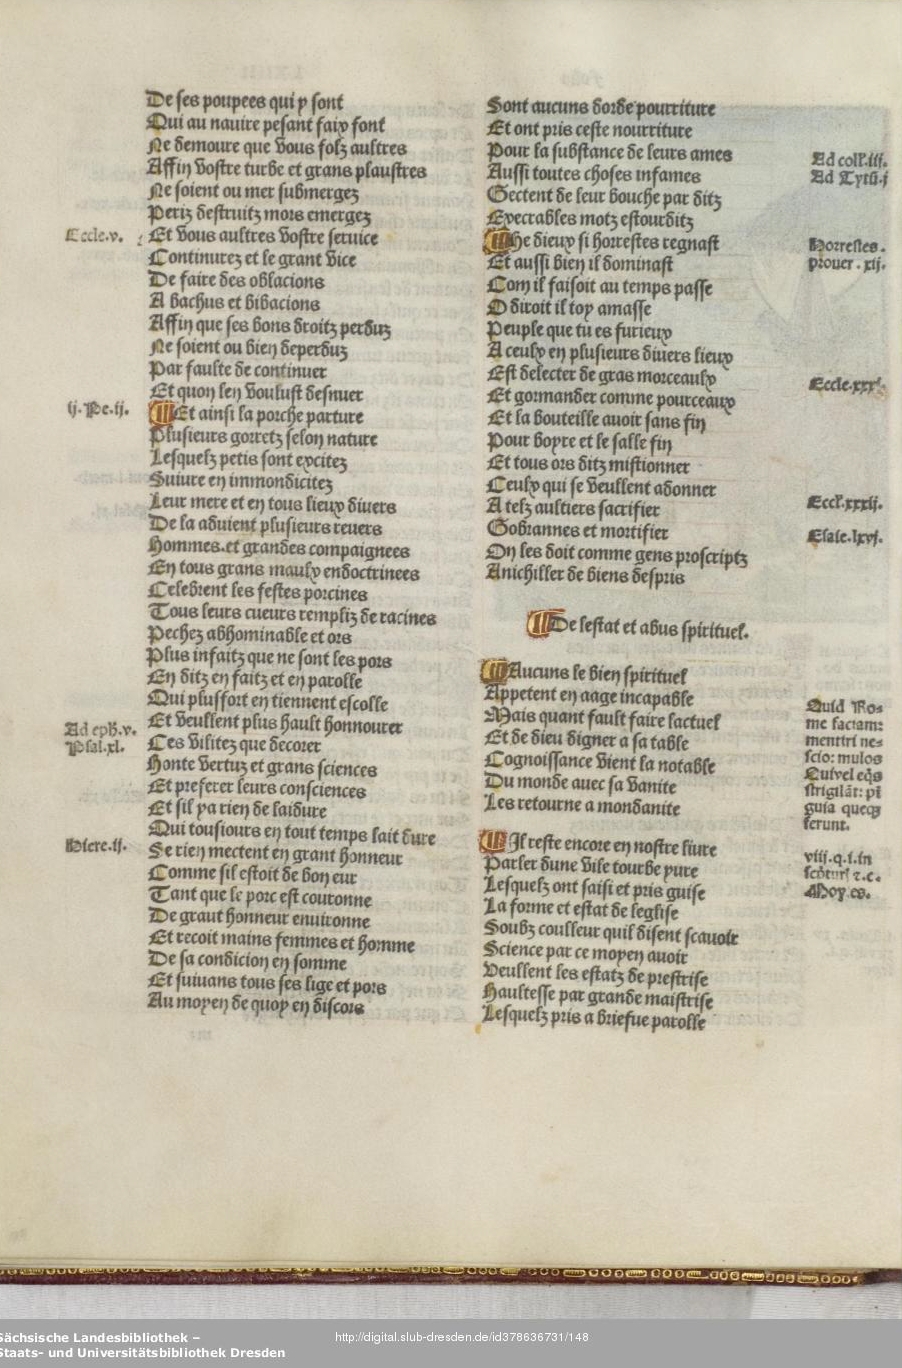 De ses poupees qui y sont
Qui au nauire pesant faix font
Ne demoure que vous folz aultres
Affin vostre turbe et grans plaustres
Ne soient ou mer submergez
Periz destruitz mors emergez
Eccle.v.
Et vous aultres vostre seruice
Continurez et le grant vice
De faire des oblacions
A bachus et bibacions
Affin que ses bons droitz perduz
Ne soient ou bien deperduz
Par faulte de continuer
Et quon len voulust desnuer
ij.Pe.ij.
Et ainsi la porche parture
Plusieurs gorretz selon nature
Lesquelz petis sont excitez
Suiure en immondicitez
Leur mere et en tous lieux diuers
De la aduient plusieurs reuers
Hommes.et grandes compaignees
En tous grans maulx endoctrinees
Celebrent les festes porcines
Tous leurs cueurs rempliz de racines
Pechez abhominable et ors
Plus infaitz que ne sont les pors
En ditz en faitz et en parolle
Qui plusfort en tiennent escolle
Ad eph.v.
Et veullent plus hault honnourer
Psal.xl.
Ces vilitez que decorer
Honte vertuz et grans sciences
Et preferer leurs consciences
Et sil ya rien de laidure
Qui tousiours en tout temps lait dure
Hiere.ij.
Se rien mectent en grant honneur
Comme sil estoit de bon eur
Tant que le porc est couronne
De graut honneur enuironne
Et recoit mains femmes et homme
De sa condicion en somme
Et suiuans tous ses lige et pors
Au moyen de quoy en discors
Sont aucuns dorde pourriture
Et ont pris ceste nourriture
Pour la substance de leurs ames
Ad coll.iij.
Aussi toutes choses infames
Ad Tytū.j
Gectent de leur bouche par ditz
Execrables motz estourditz
He dieux si horrestes regnast
Horrestes.
Et aussi bien il dominast
prouer.xij.
Com il faisoit au temps passe
O diroit il toy amasse
Peuple que tu es furieux
A ceulx en plusieurs diuers lieux
Est delecter de gras morceaulx
Eccle.
Et gormander comme pourceaux
Et la bouteille auoir sans fin
Pour boyre et le salle fin
Et tous ors ditz mistionner
Ceulx qui se veullent adonner
Eccl.xxxij.
A telz aultiers sacrifier
Gobrannes et mortifier
Esaie.lxvj.
On les doit comme gens proscriptz
Anichiller de biens despris
De lestat et abus spirituel.
Aucuns le bien spirituel
Appetent en aage incapable
Mais quant fault faire lactuel
Et de dieu digner a sa table
Cognoissance vient la notable
Du monde auec sa vanite
Les retourne a mondanite
Quid Ro=
me faciam:
mentiri ne=
scio: mulos
Quivel eqs
strigilāt:
guia queq
ferunt.
Il reste encore en nostre liure
Parler dune vile tourbe yure
Lesquelz ont saisi et pris guise
La forme et estat de leglise
Soubz coulleur quil disent scauoir
Science par ce moyen auoir
Veullent les estatz de prestrise
Haultesse par grande maistrise
Lesquelz pris a briefue parolle
viij.q.i.in